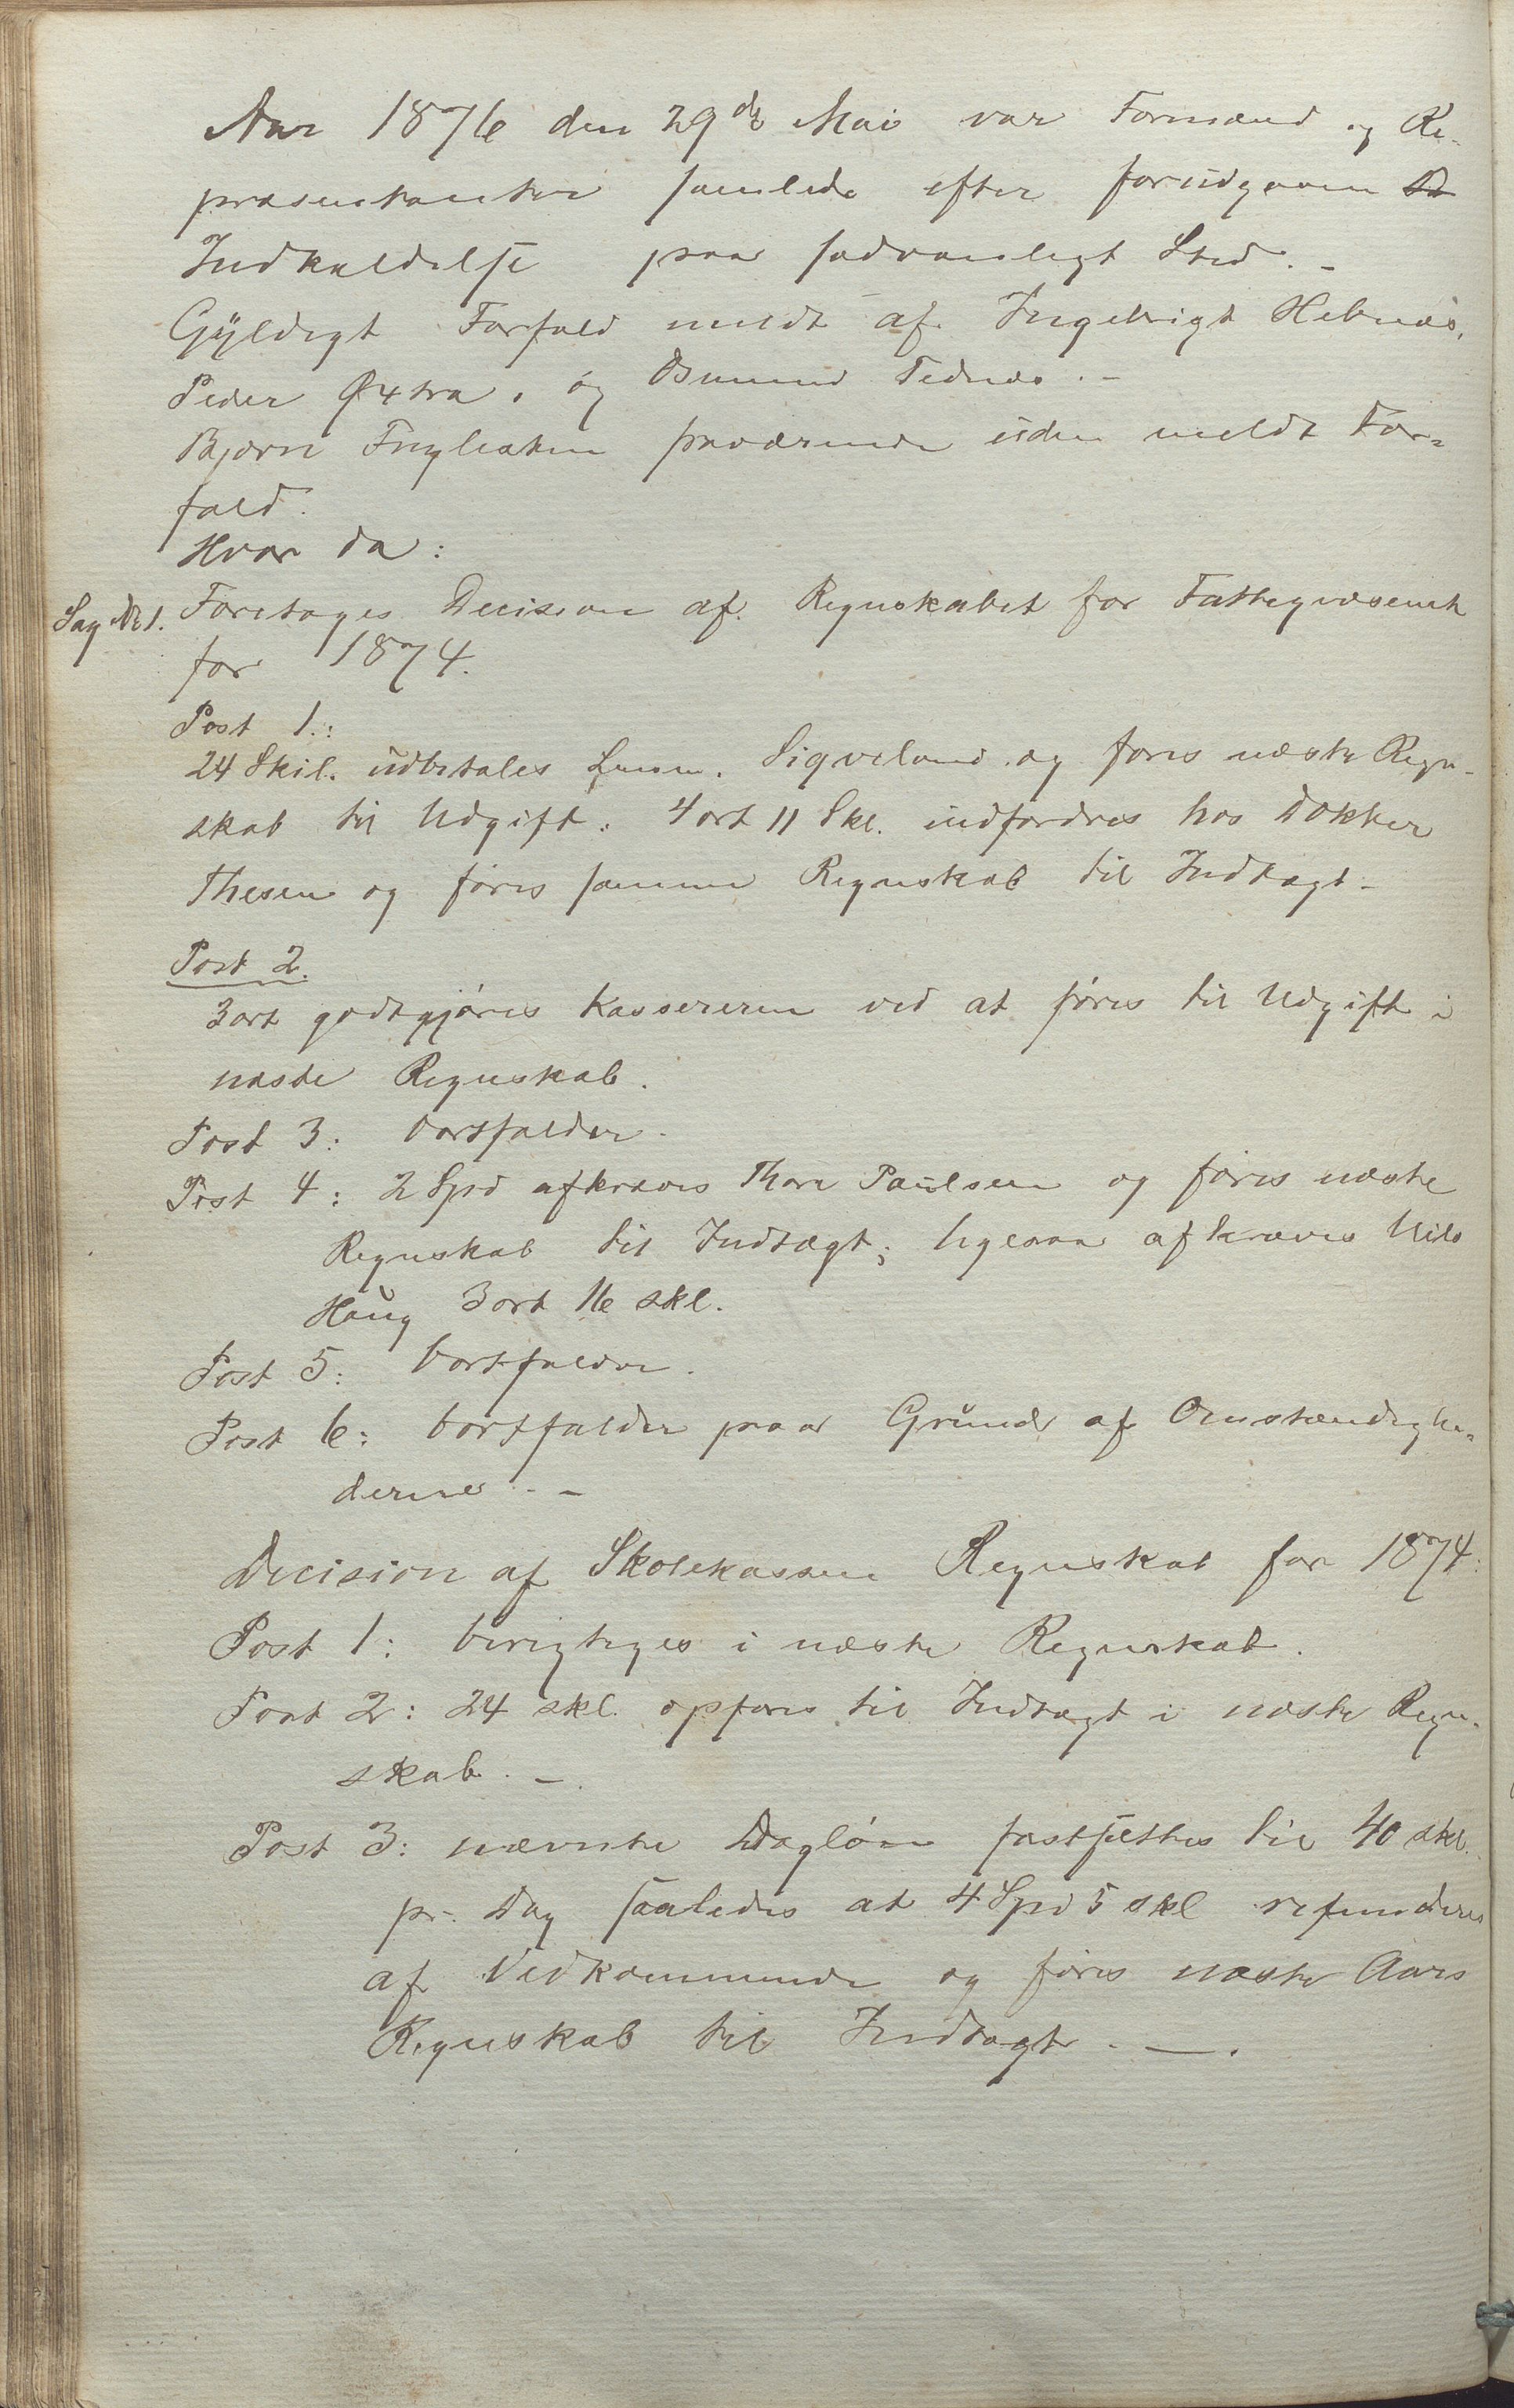 Aar 1876 den 29de Mai var Formænd og Re-
præsentanter samlede efter forudgaaen
Indkaldelse paa sædvanligt Sted. -
Gyldigt Forfald meldt af Ingebrigt Hebnæs,
Peder Øxtra, og Osmund Tednæs. -
Bjørn fraværende uden meldt For-
fald.
Hvor da:
Sag No 1. Foretoges Decision af Regnskabet for Fattigvæsenet
for 1874.
Post 1.:
24 Skil. udbetales Lensm. Sigveland og føres næste Regn-
skab til Udgift. 4 ort 11 Skl. indfordres hos Dokter
Thesen og føres samme Regnskab til Indtægt -
Post 2.
3 ort godtgjøres Kassereren ved at føres til Udgift i
næste Regnskab.
Post 3: bortfalder.
Post 4: 2 Spd afkræves Thore Paulsen og føres næste
Regnskab til Indtægt; ligesaa afkræves Nils
Haug 3 ort 16 skl.
Post 5: bortfalder.
Post 6: bortfalder paa Grund af Omstændighe-
derne. -
Decision af Skolekassens Regnskab for 1874:
Post 1: berigtiges i næste Regnskab.
Post 2: 24 skl. opføres til Indtægt i næste Regn-
skab. -
Post 3: nævnte Dagløn fastsættes til 40 skl.
pr. Dag saaledes at 4 Spd 5 skl refunderes
af Vedkommende og føres næste Aars
Regnskab til Indtægt. -